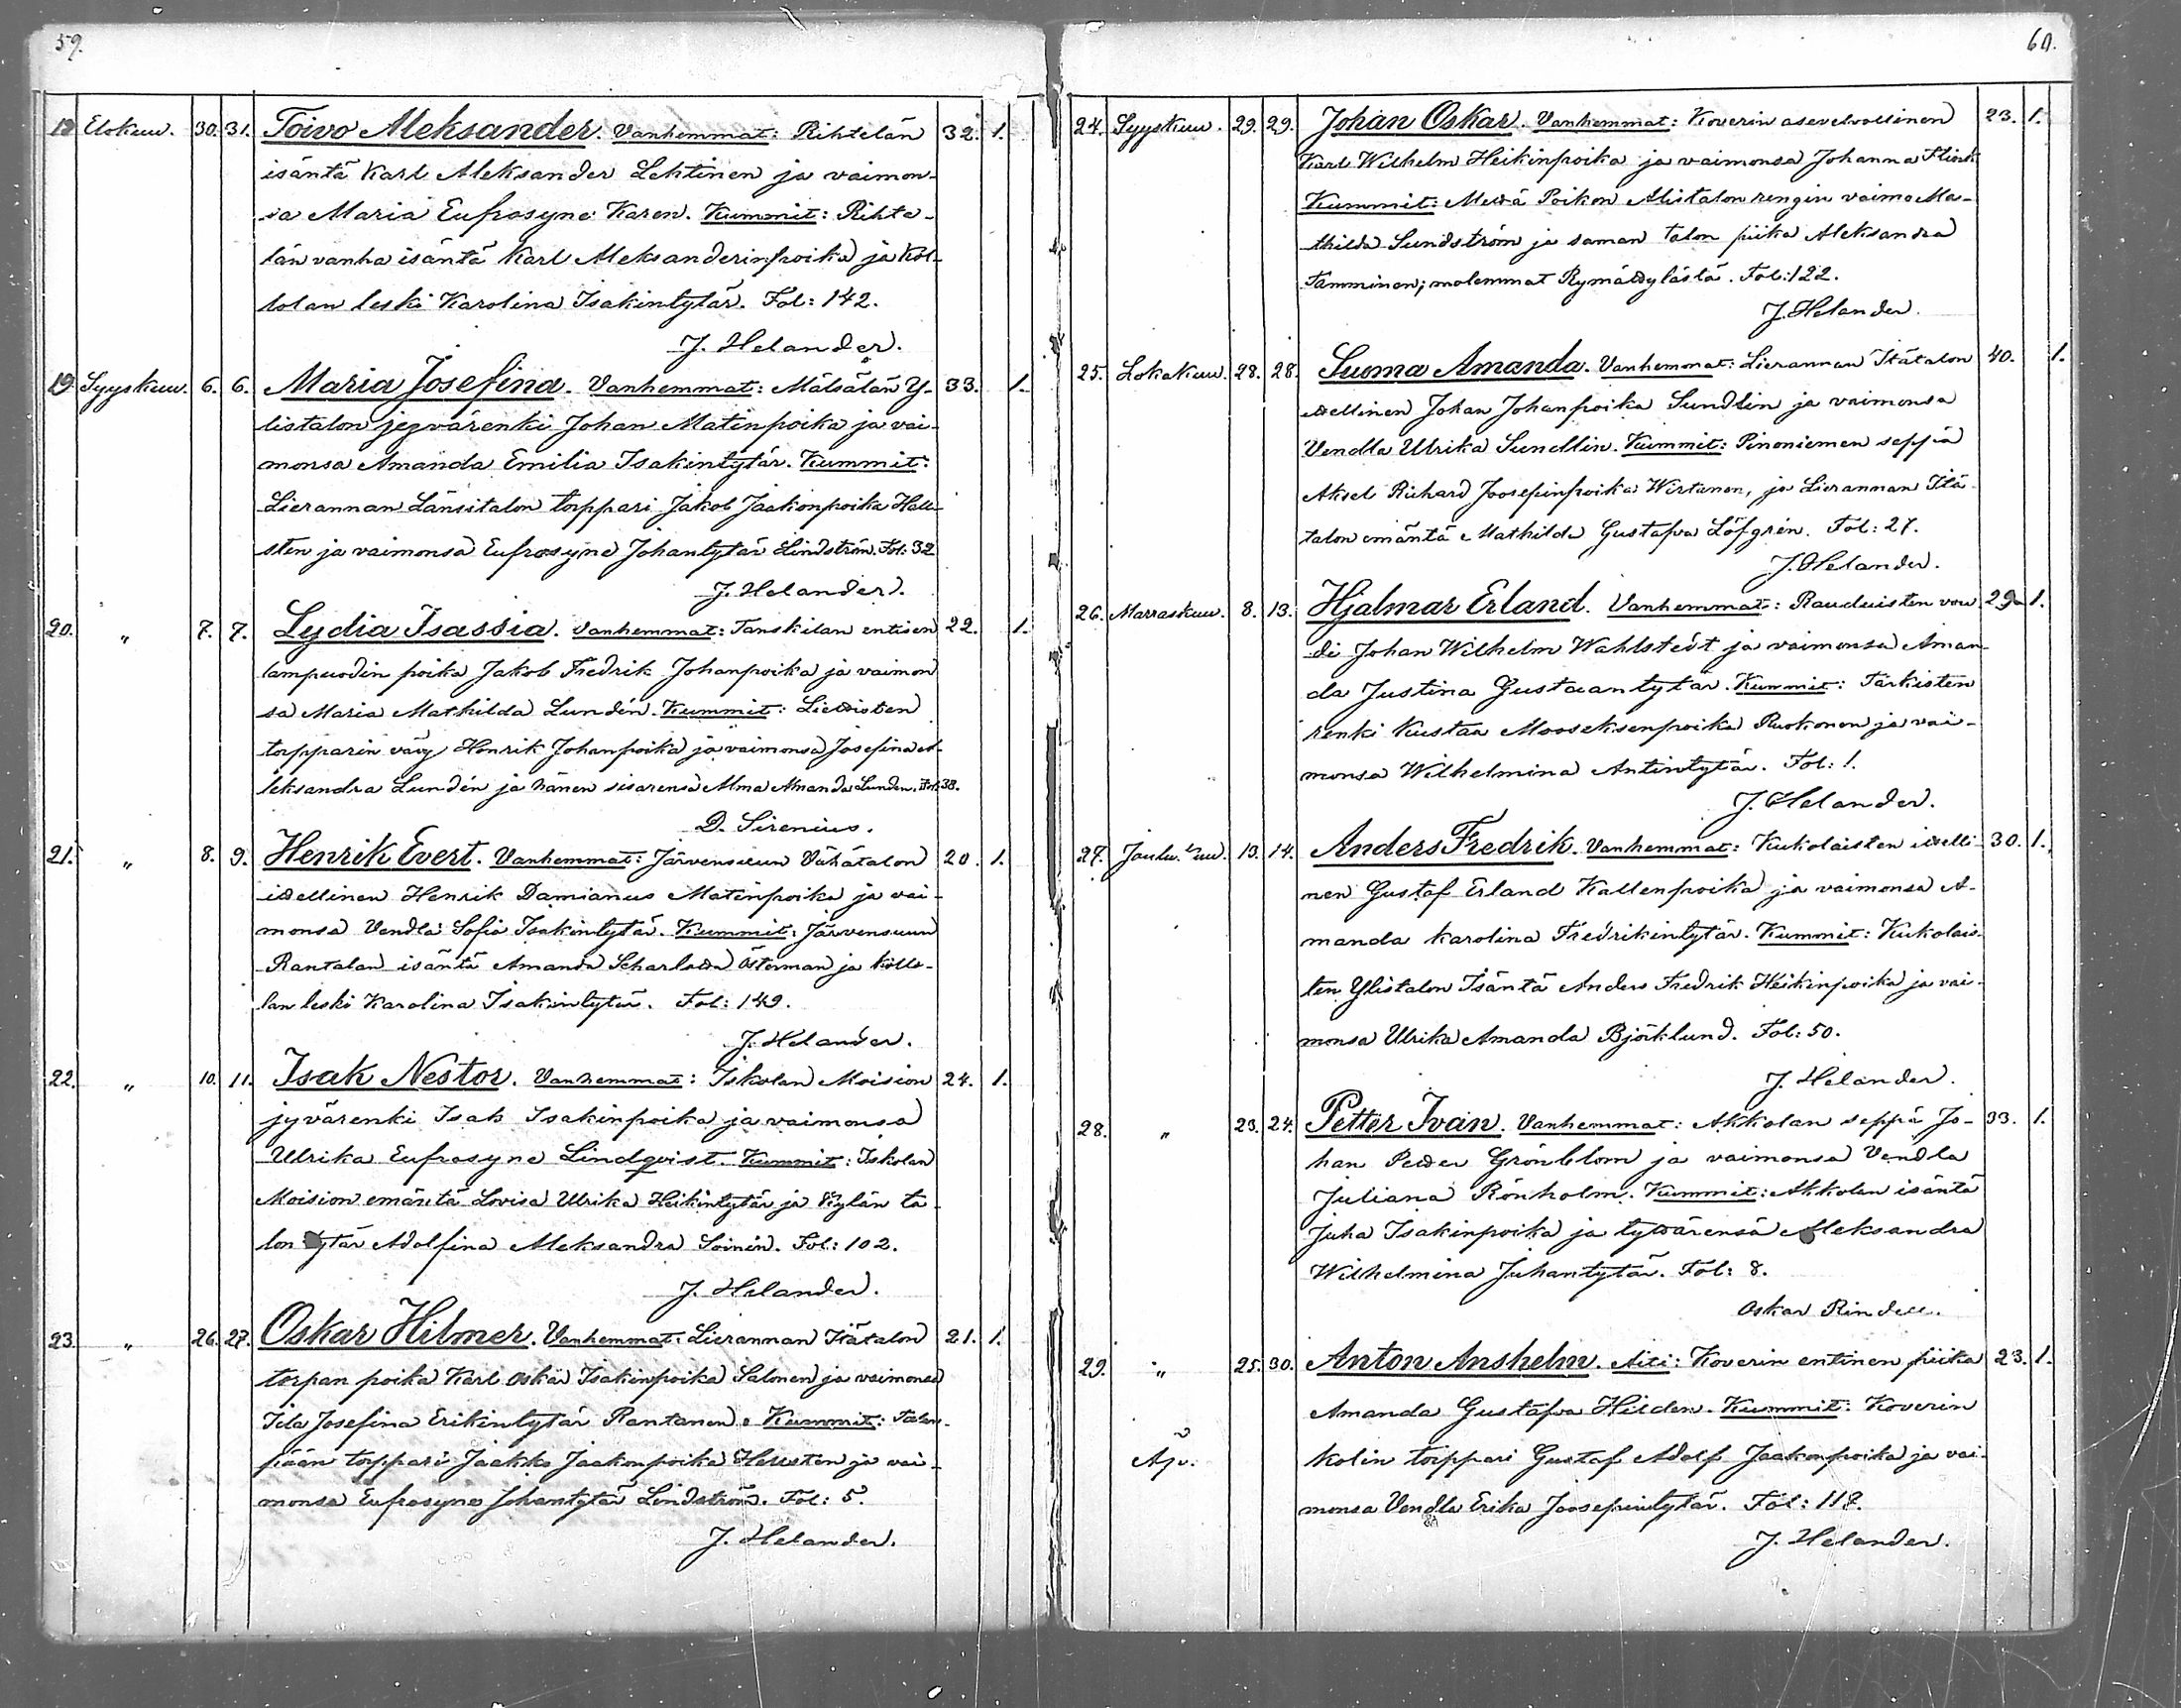 59.
18. Elokuu. 30. 31. Toivo Aleksander. Vanhemmat: Rihtelän 32. 1.
isäntä Karl Aleksander Lehtinen ja vaimon-
sa Maria Eufrosyne Karen. Kummit: Rihte-
län vanha isäntä Karl Aleksanderinpoika ja Köl-
lolan leski Karolina Isakintytär. Fol: 142.
J. Helander.
19. Syyskuu. 6. 6. Maria Josefina. Vanhemmat: Mälsälän Y- 33. 1.
listalon jyvärenki Johan Matinpoika ja vai-
monsa Amanda Emilia Isakintytär. Kummit:
Lierannan Länsitalon torppari Jakob Jaakonpoika Helle-
sten ja vaimonsa Eufrosyne Johantytär Lindström. Fol: 32
J. Helander.
20. " 7. 7. Lydia Isassia. Vanhemmat: Tanskilan entisen 22. 1.
lampuodin poika Jakob Fredrik Johanpoika ja vaimon
sa Maria Mathilda Lundén. Kummit: Liewisten
torpparin vävy Henrik Johanpoika ja vaimonsa Josefina A-
leksandra Lundén ja hänen sisarensa Alma Amanda Lunden. Fol: 38.
D. Sirenius.
21. " 8. 9. Henrik Evert. Vanhemmat: Järvensuun Vähätalon 20. 1.
itsellinen Henrik Damianus Matinpoika ja vai-
monsa Vendla Sofia Isakintytär. Kummit: Järvensuun
Rantalan isäntä Amanda Scharlotta Österman ja Köllo-
lan leski Karolina Isakintytär. Fol: 149.
J. Helander.
22. " 10. 11. Isak Nestor. Vanhemmat: Iskolan Moision 24. 1.
jyvärenki Isak Isakinpoika ja vaimonsa
Ulrika Eufrosyne Lindqvist. Kummit: Iskolan
Moision emäntä Lovisa Ulrika Heikintytär ja Kylän ta-
lon tytär Adolfina Aleksandra Soinén. Fol: 102.
J. Helander.
23. " 26. 27. Oskar Hilmer. Vanhemmat: Lierannan Itätalon 21. 1.
torpan poika Karl Oskar Isakinpoika Salonen ja vaimonsa
Ida Josefina Erikintytär Rantanen. Kummit: Talon-
pään torppari Jaakko Jaakonpoika Hellsten ja vai-
monsa Eufrosyne Johantytär Lindström. Fol: 5.
J. Helander.
60.
24. Syyskuu. 29. 29. Johan Oskar. Vanhemmat: Koverin asevelvollinen 23. 1.
Karl Wilhelm Heikinpoika ja vaimonsa Johanna Flink
Kummit: Poikon Alistalon rengin vaimo Ma-
thilda Sundström ja saman talon piika Aleksandra
Tamminen; molemmat Rymättylästä. Fol: 122.
J. Helander.
25. Lokakuu. 28. 28. Suoma Amanda. Vanhemmat: Lierannan Itätalon 40. 1.
itsellinen Johan Johanpoika Sundlin ja vaimonsa
Vendla Ulrika Sundlin. Kummit: Pinoniemen seppä
Aksel Richard Joosepinpoika Wirtanen, ja Lierannan Itä-
talon emäntä Mathilda Gustafva Löfgrén. Fol: 27.
J. Helander.
26. Marraskuu. 8. 13. Hjalmar Erland. Vanhemmat: Rauduisten vou 29 1.
di Johan Wilhelm Wahlstedt ja vaimonsa Aman-
da Justina Gustaantytär. Kummit: Tärkisten
renki Kustaa Mooseksenpoika Ruokonen ja vai-
monsa Wilhelmina Antintytär. Fol: 1.
J. Helander.
27. Joulukuu. 13. 14. Anders Fredrik. Vanhemmat: Kukolaisten itselli- 30. 1.
nen Gustaf Erland Kallenpoika ja vaimonsa A-
manda Karolina Fredrikintytär. Kummit: Kukolais-
ten Ylistalon Isäntä Anders Fredrik Heikinpoika ja vai-
monsa Ulrika Amanda Björklund. Fol: 50.
J. Helander.
28. " 23. 24. Petter Ivan. Vanhemmat: Akkolan seppä Jo- 33. 1.
han Petter Grönblom ja vaimonsa Vendla
Juliana Rönholm. Kummit: Akkolan isäntä
Juha Isakinpoika ja tyttärensä Aleksandra
Wilhelmina Juhantytär. Fol: 8.
Oskar Rindell.
29. " 25. 30. Anton Anshelm. Äiti: Koverin entinen piika 23. 1.
Amanda Gustafva Hilden. Kummit: Koverin
Äpö. kolin torppari Gustaf Adolf Jaakonpoika ja vai-
monsa Vendla Erika Joosepintytär. Fol: 118.
J. Helander.